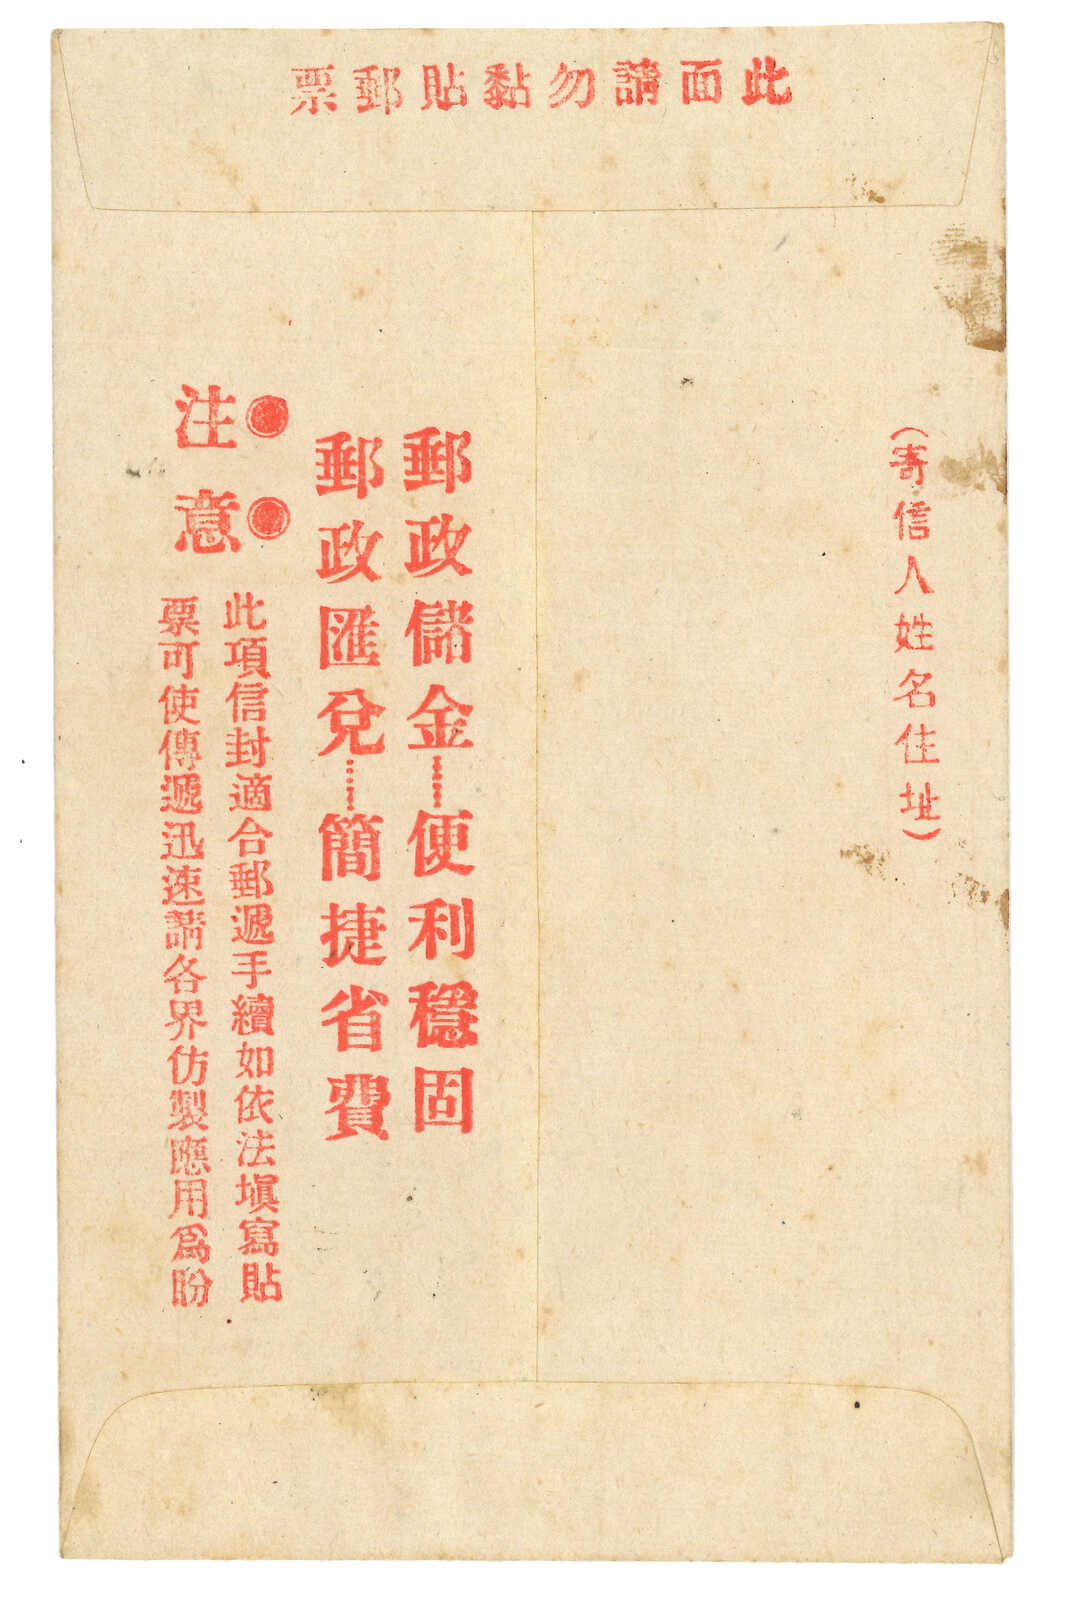 此面請勿黏貼郵票
（寄信人姓名住址）
郵政儲金……便利穩固
郵政匯兌……簡捷省費
注意
此項信封適合郵遞手續如依法塡寫貼
票可使傳遞迅速請各界仿製應用爲盼